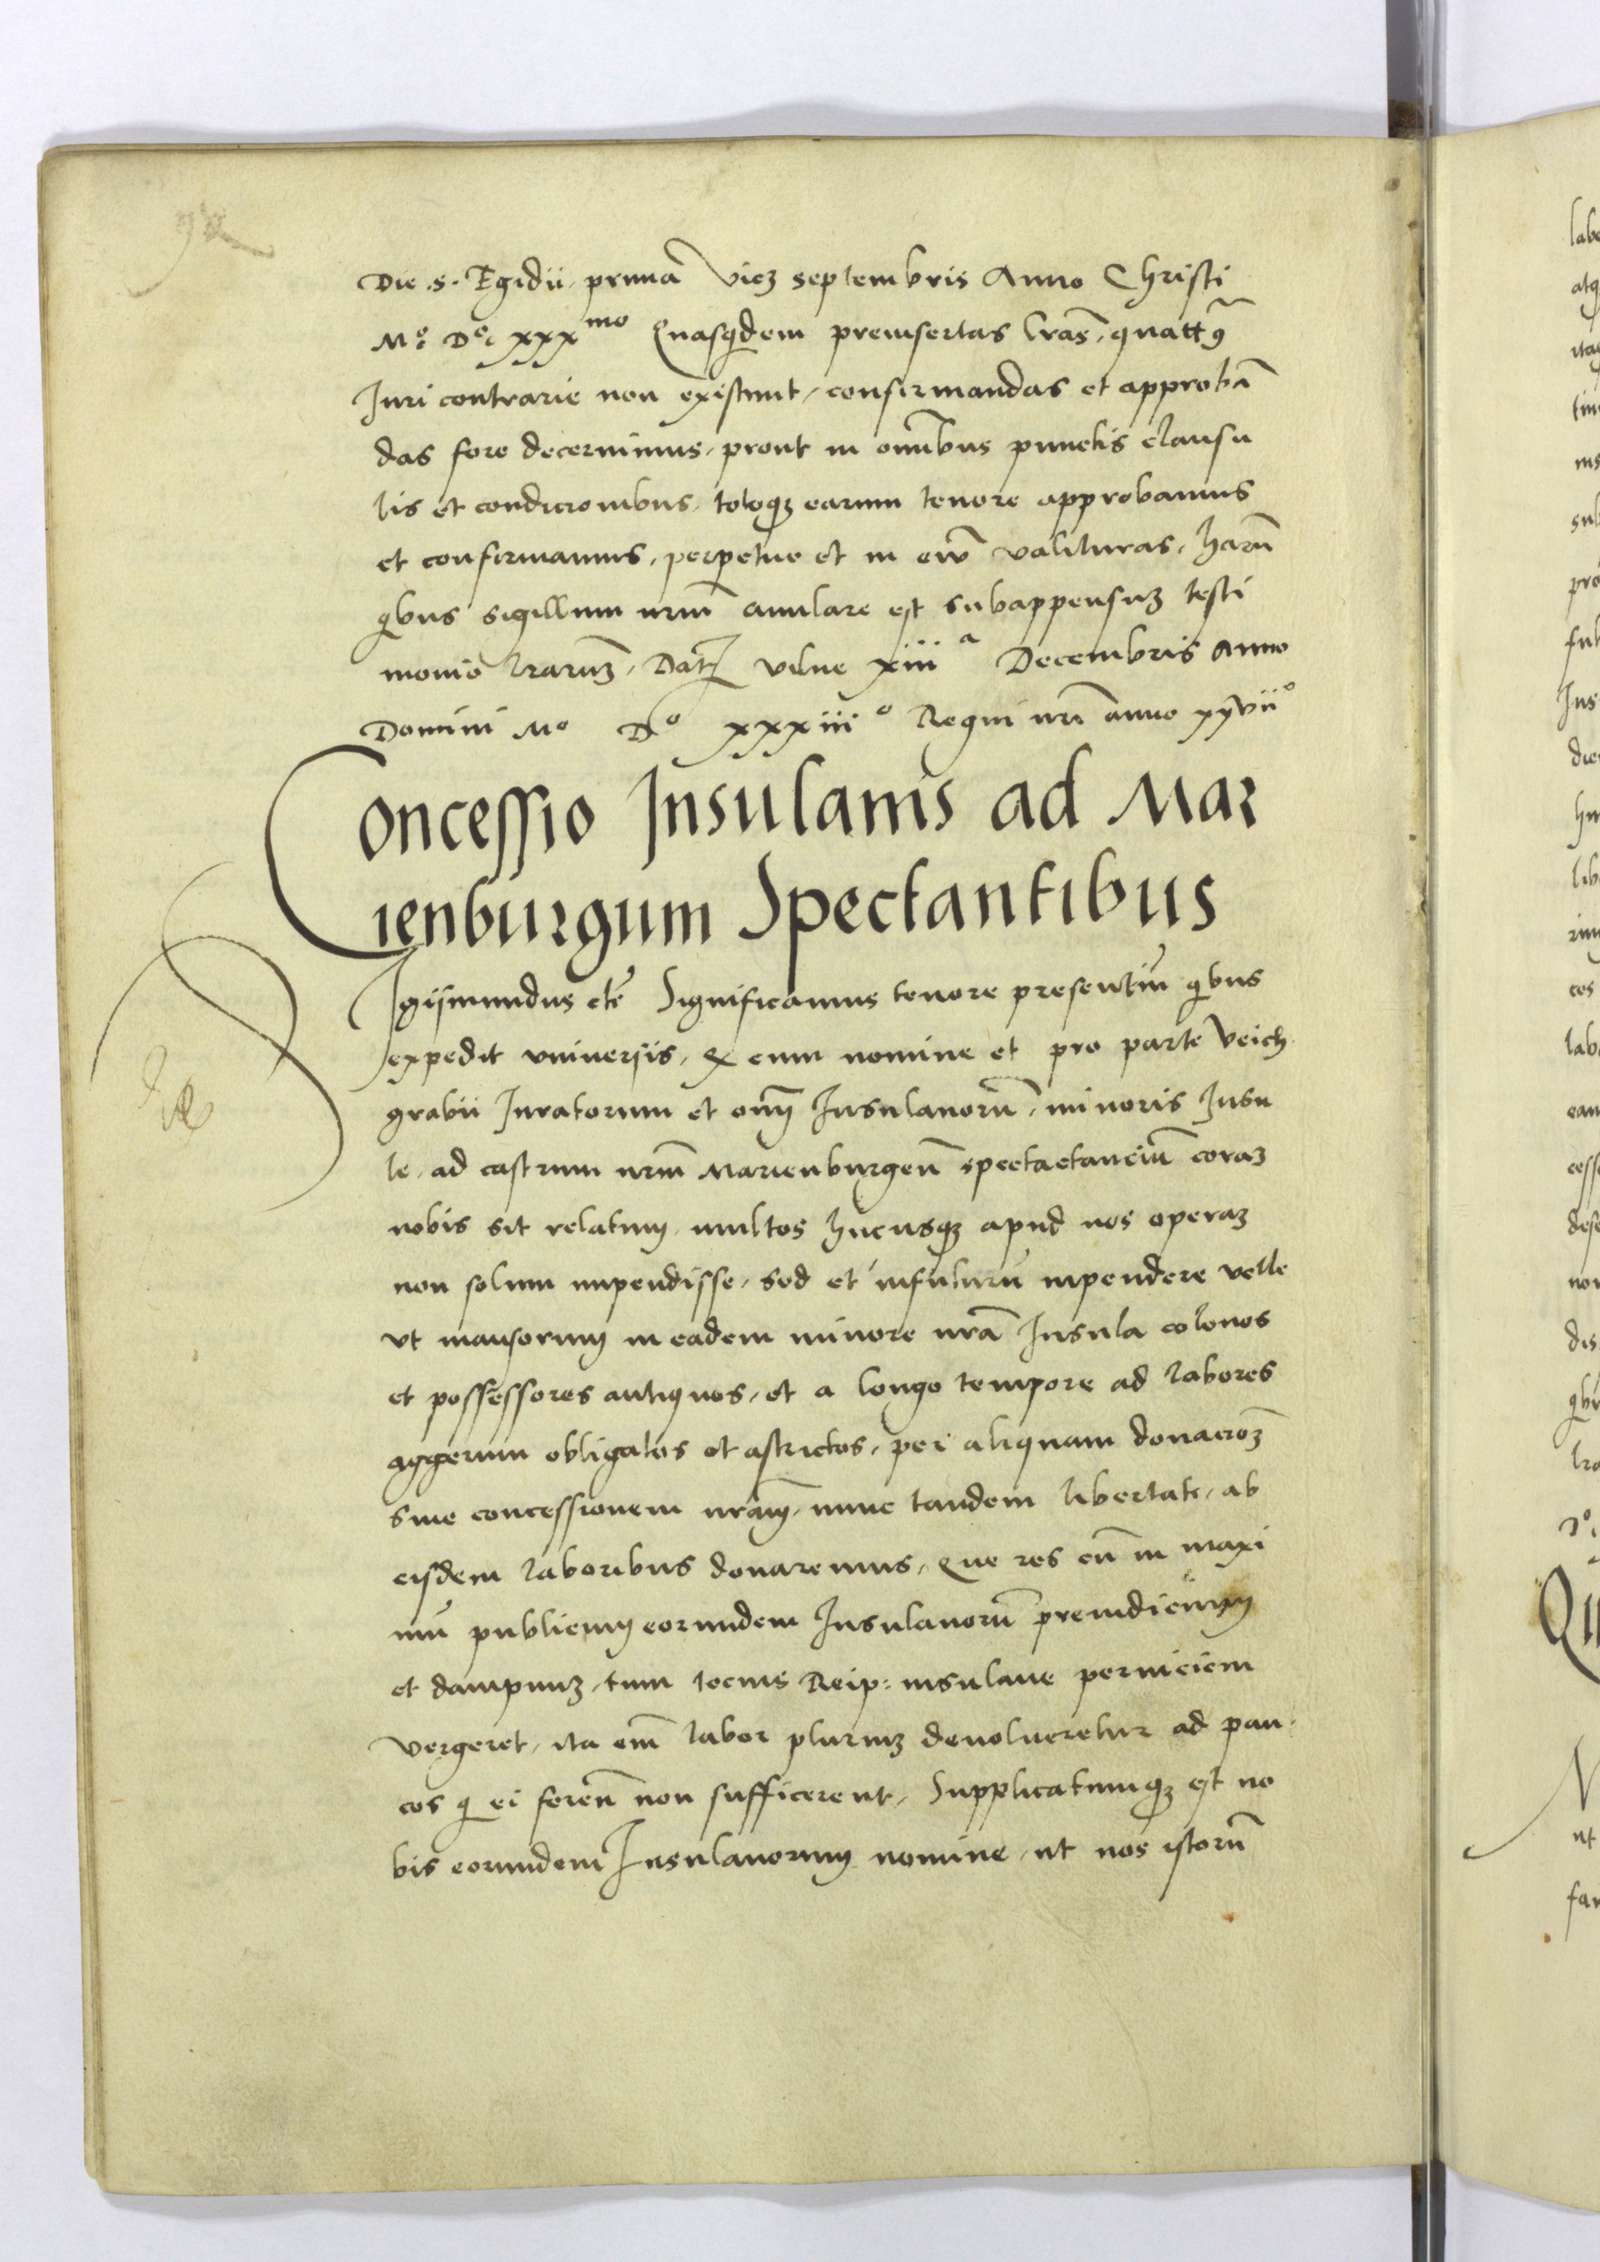 Die .s. Egidii, prima Vicꝫ septembris Anno Christi
M° D° xxx^mo Quasqdem preinsertas lras̃, quatt9
Iuri contrarie non existunt, confirmandas et approbā
das fore decernimus, prout in omībus punctis clausu
lis et condicionibus, totoqꝫ earum tenore approbamus
et confirmamus, perpetue et in ew̄ valituras, harū
qbus sigillum nrm̄ anulare est subappensuꝫ testi
monio lrarnꝫ, Datꝫ Vilne xiii^a Decembris Anno
Domini M° D° xxxiii° Regni nrī anno xxvii°
Concessio Insulanis ad Mar
ienburgum Spectantibus
Sigismundus etc̄ Significamus tenore presentiū qbus
expedit vniuersis, Q cum nomine et pro parte Veich
grabii Iuratorum et onīj Insulanorū, minoris Insu
le, ad castrum nrm̄ Marienburgeñ spectactanciū coraꝫ
nobis sit relatum, multos hucusqꝫ apud nos operaꝫ
non solum impendisse, sed et infuturū inpendere velle
vt mansorum in eadem minore nrā Insula colonos
et possessores antiquos, et a longo tempore ad labores
aggerum obligatos et astrictos, per aliquam donacioꝫ
siue concessionem nrām, nunc tandem libertate, ab
eisdem laboribus donaremus, Que res cū in maxi
mū publicum eorundem Insulanorū preiudicium
et dampnuꝫ, tum tocius Reip: insulane perniciem
vergeret, ita em̄ labor pluriuꝫ deuolueretur ad pau
cos q ei fereñ non sufficerent, Supplicatumqꝫ est no
bis eorundem Insulanorum nomine, ut nos istorū